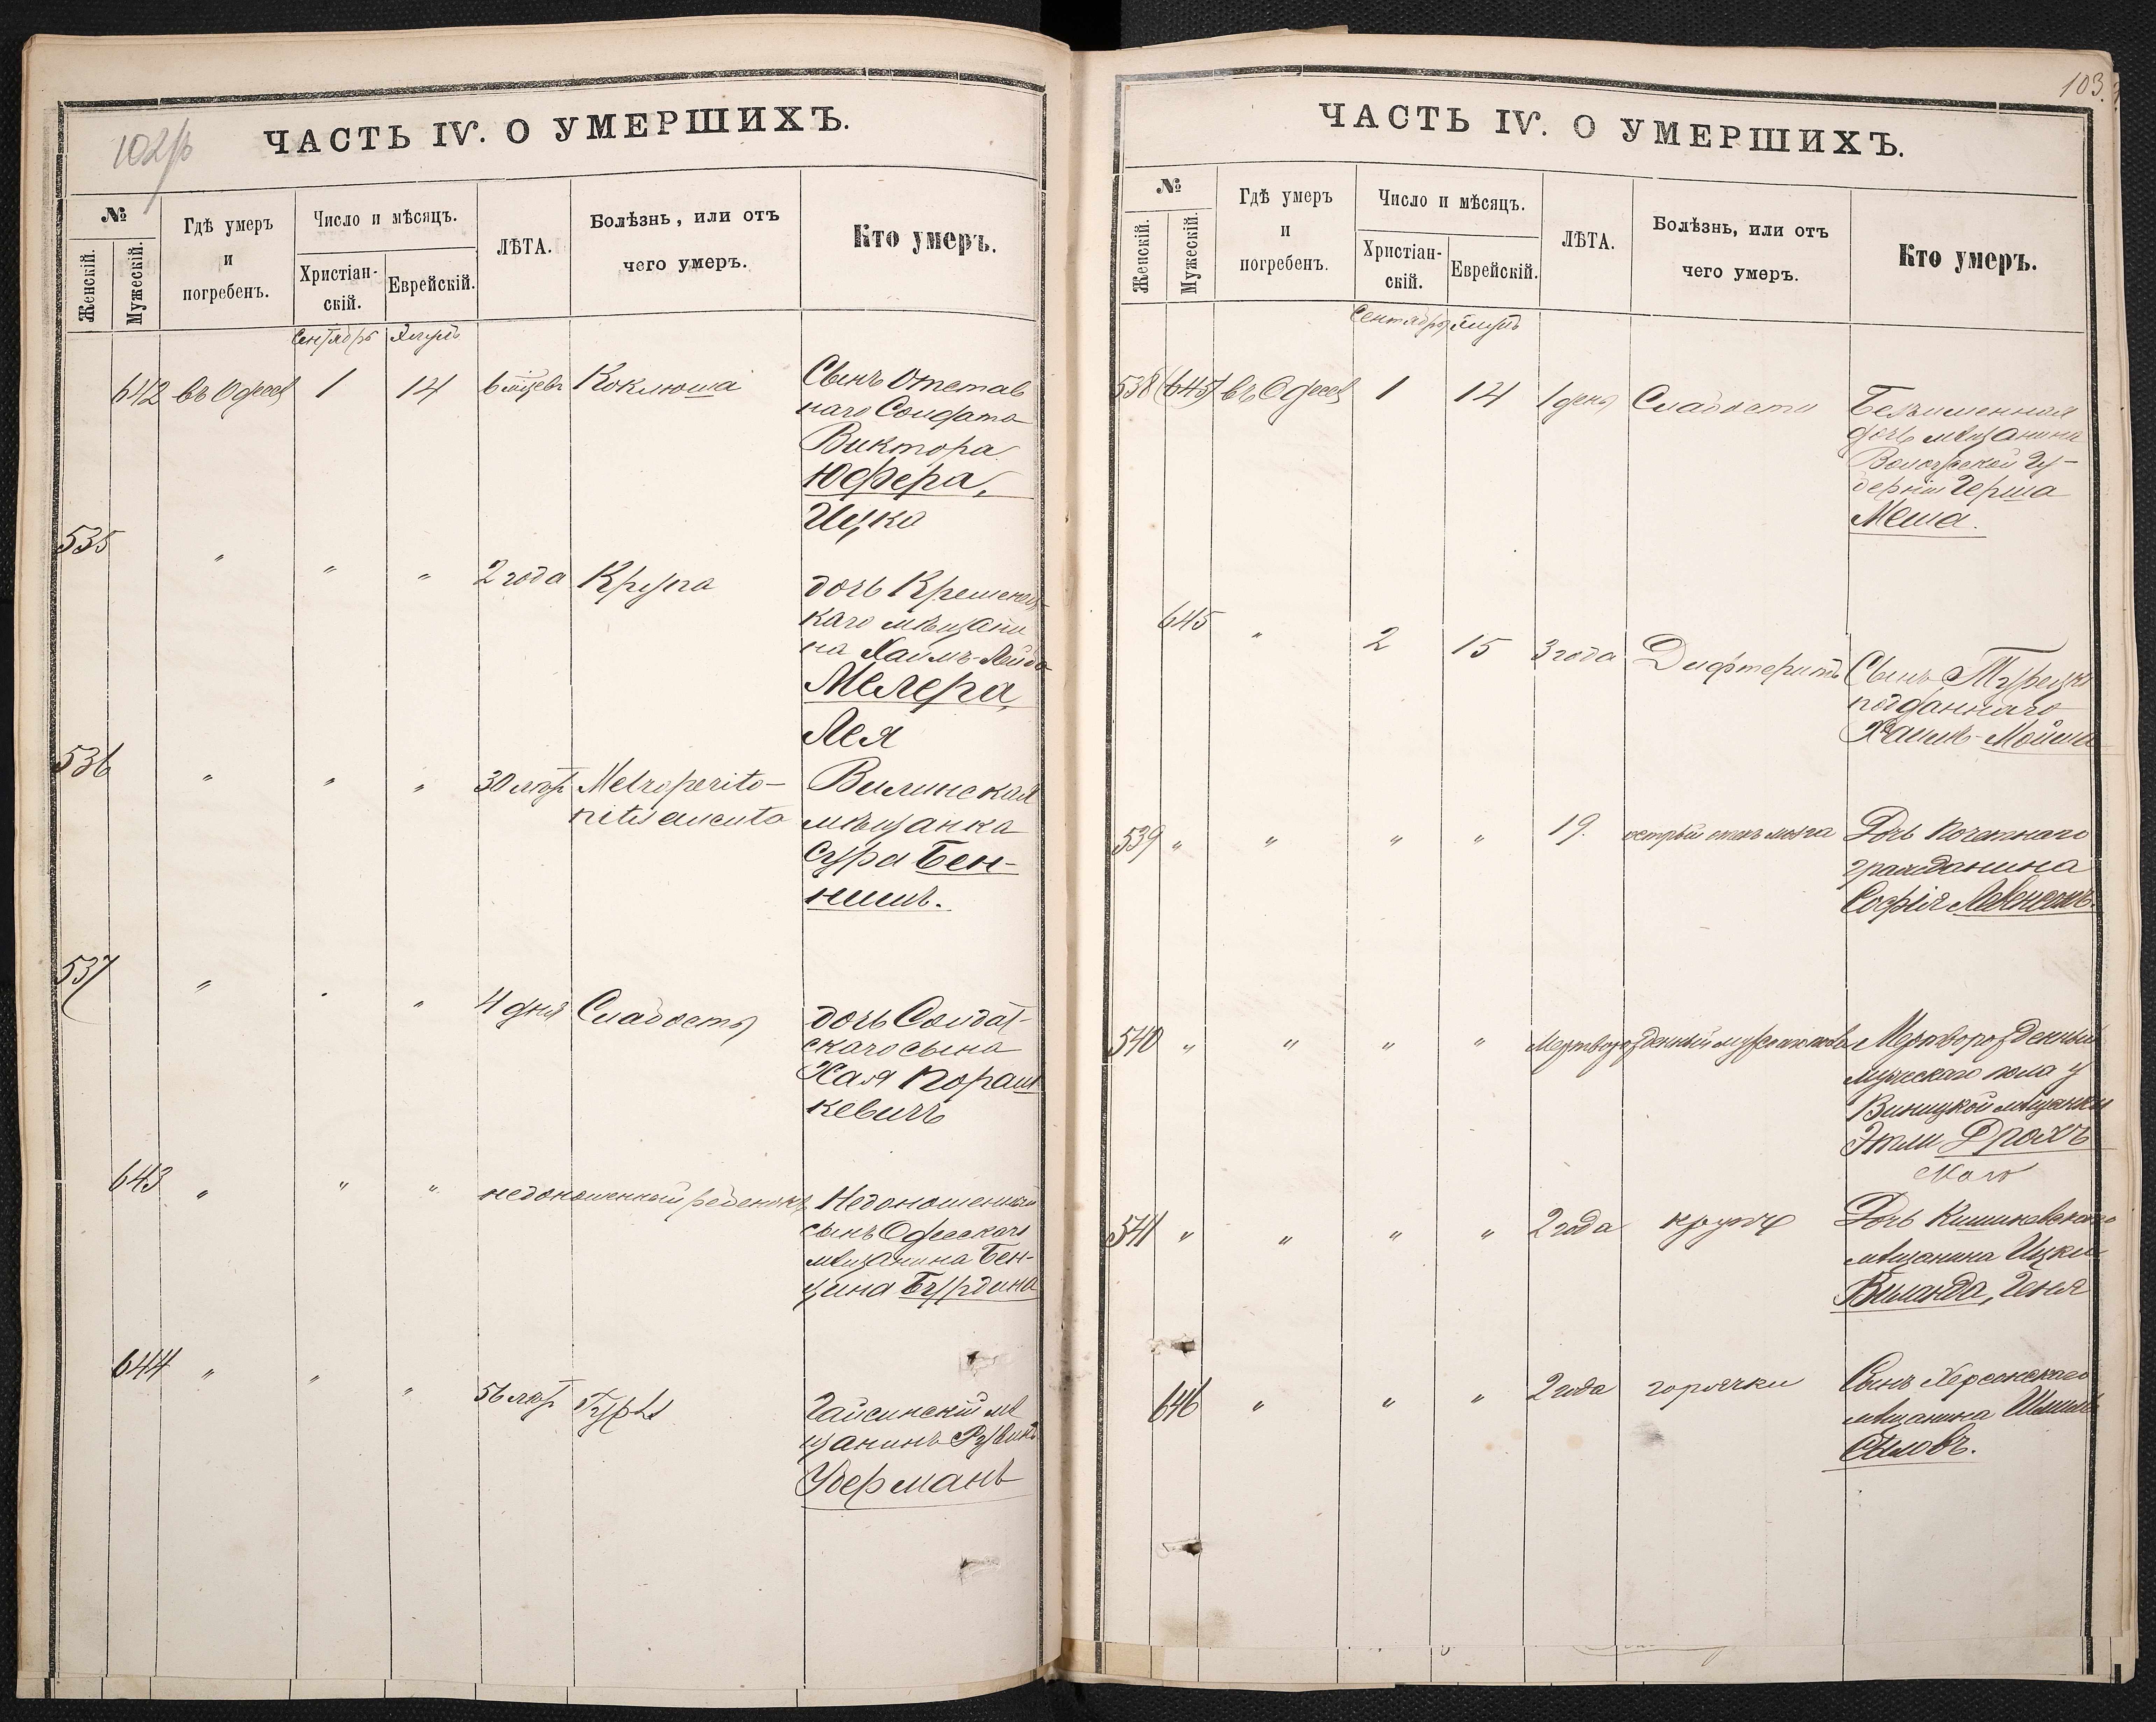 102/б
ЧАСТЬ IV. О УМЕРШИХЪ.
№
Женскій.
Мужескій.
Гдѣ умеръ
и
погребенъ.
Число и мѣсяцъ.
Христіан-
скій.
Еврейскій.
ЛѢТА.
Болѣзнь, или отъ
чего умеръ.
Кто умеръ.
Сентябрь
642 въ Одессѣ 1 14 6 мѣсцевъ Коклюша Сынъ Отстав
наго Солдата
Виктора
Юфера,
Ицко
535 " " " 2 года Крупа дочь Кременец-
каго мѣщани
на Хаимъ-Лейба
Мелера,
Лея
536 " " " 30 лѣтъ Metroperito- Вилинская
nitis acuta мѣщанка
Сура Бен-
537 " " 4 дня Слабость дочь Солдат-
скаго сына
Хая Пораш
кевичъ
643 " " " недоношенный ребенокъ Недоношенный
сынъ Одесскаго
мѣщанина Бен-
цина Бурдина
644 " " " 56 лѣтъ Гайсинскій мѣ
щанинъ Рувинъ
Уберманъ
103.
ЧАСТЬ IV. О УМЕРШИХЪ.
№
Женскій.
Мужескій.
Гдѣ умеръ
и
погребенъ.
Число и мѣсяцъ.
Христіан-
скій.
Еврейскій.
ЛѢТА.
Болѣзнь, или отъ
чего умеръ.
Кто умеръ.
Сентябрь
538 (645) въ Одессѣ 1 14 1 день Слабости Безъименная
дочь мѣщанина
Гу-
берніи Герша
Меша.
645 " 2 15 3 года Дифтеритъ Сынъ Турецк
подданнаго
Хаимъ-Мойша
539 " " " " 19. острый отекъ мозга Дочь Почетнаго
гражданина
Софія
540 " " " " Мертворожденный Мертворожденный
мужескаго пола у
Виницкой мѣщанки
Этли Дрохъ
541 " " " " 2 года крупъ Дочь Кишиневскаго
мѣщанина Ицки
Виланда, Геня
646 " " " 2 года горячки Сынъ Херсонскаго
мѣщанина Шмиль